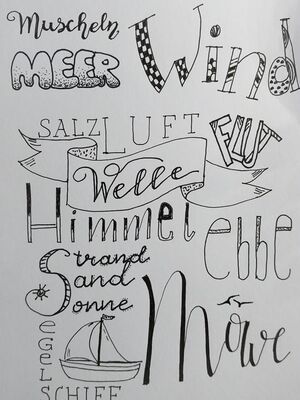 Muscheln
MEER
Wind
SALZLUFT
FLUT
Welle
Himmel
ebbe
Strand
Sand
Sonne
Möwe
SEGEL
SCHIFF